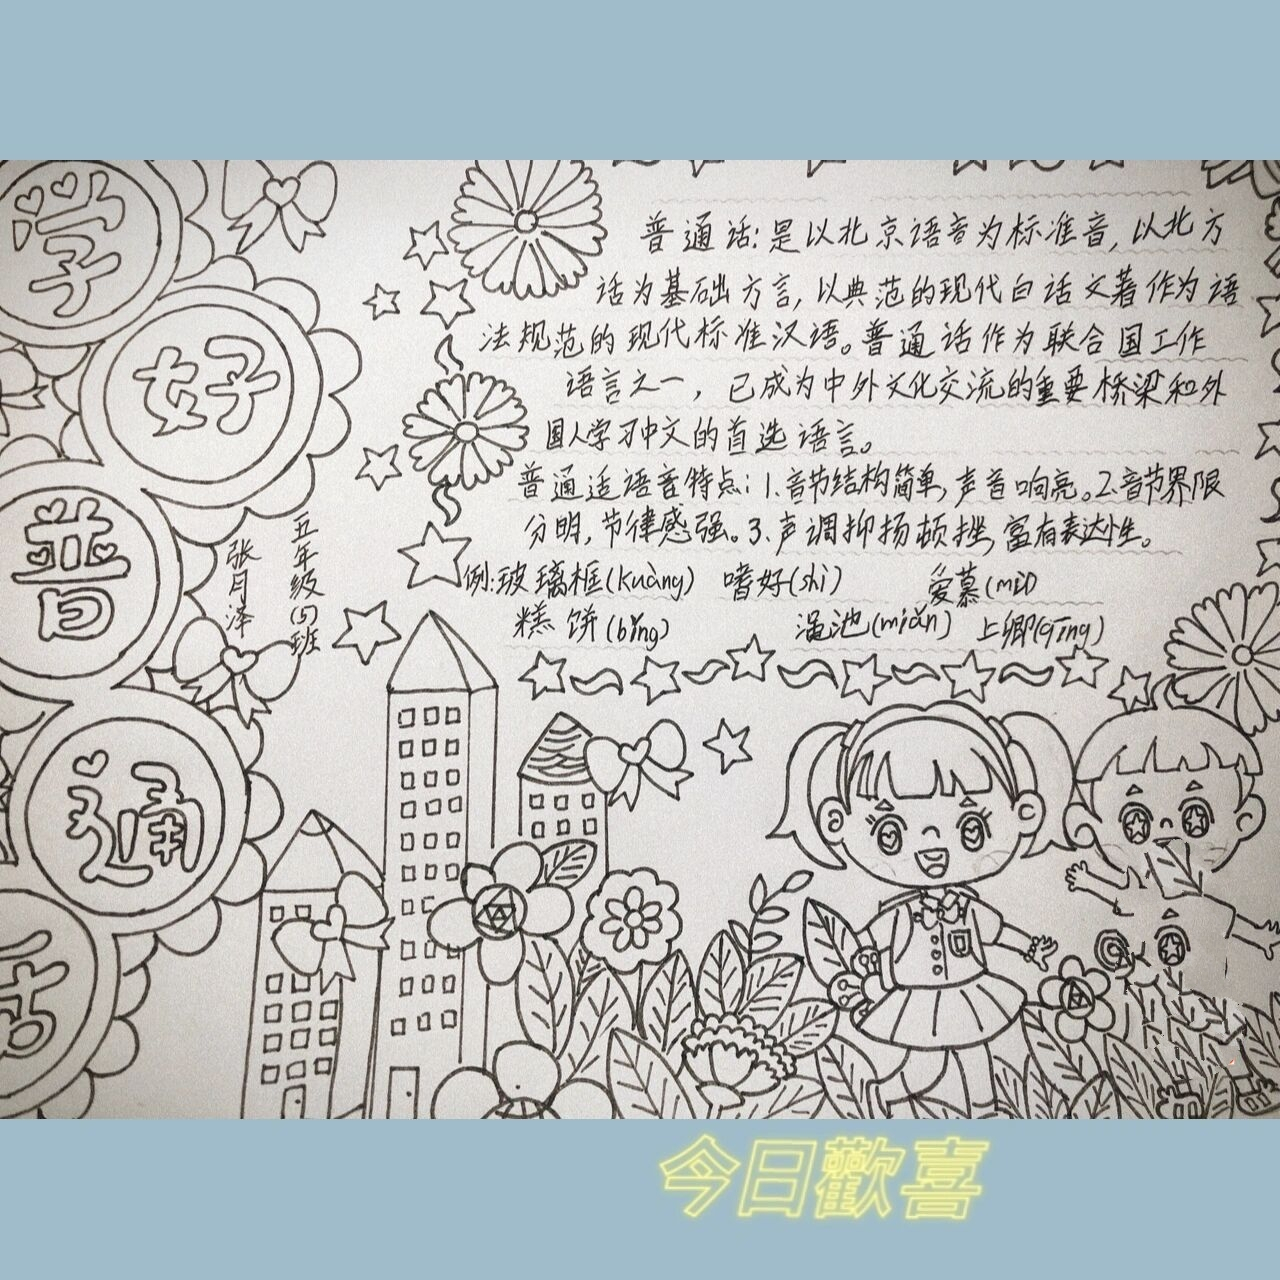 学
好
普
通
话
五年级(5)班
张月泽
普通话:是以北京语音为标准音,以北方
话为基础方言,以典范的现代白话文著作为语
法规范的现代标准汉语。普通话作为联合国工作
语言之一,已成为中外文化交流的重要桥梁和外
国人学习中文的首选语言。
普通适语音特点:1.音节结构简单,声音响亮。2.音节界限
分明,节律感强。3.声调抑扬顿挫,富有表达性。
例:玻璃框(Kuàng) 嗜好(shì) 爱慕(mù)
糕饼(bǐng) 渑池(miǎn) 上卿(qīng)
今日歡喜